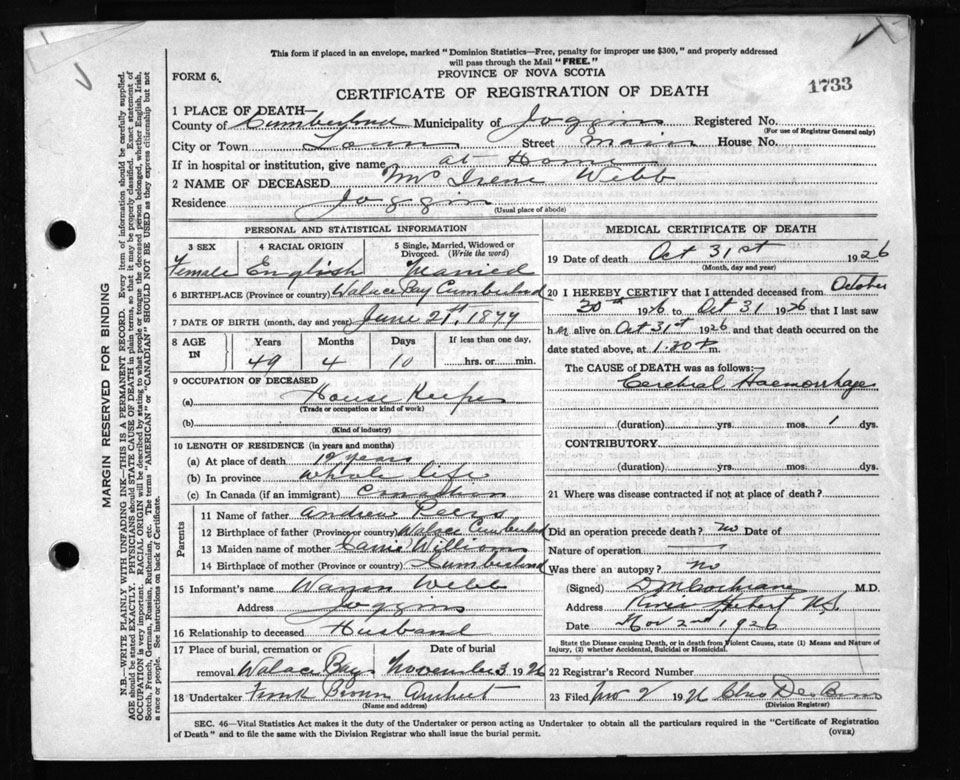 This form if placed in an envelope, marked "Dominion Statistics—Free, penalty for improper use $300," and properly addressed
will pass through the Mail "FREE."
FORM 6.
PROVINCE OF NOVA SCOTIA
CERTIFICATE OF REGISTRATION OF DEATH
1733
1 PLACE OF DEATH—
County of Cumberland Municipality of Joggins Registered No.
(For use of Registrar General only)
City or Town Town Street Main House No.
If in hospital or institution, give name at Home
2 NAME OF DECEASED Mrs Irene Webb
Residence Joggin
(Usual place of abode)
PERSONAL AND STATISTICAL INFORMATION
3 SEX 4 RACIAL ORIGIN 5 Single, Married, Widowed or Divorced. (Write the word)
Female English Married
6 BIRTHPLACE (Province or country) Walace Bay Cumberland
7 DATE OF BIRTH (month, day and year) June 21st, 1877
8 AGE IN Years Months Days If less than one day,
49 4 10 hrs. or min.
9 OCCUPATION OF DECEASED
(a) House Keeper
(Trade or occupation or kind of work)
(b)
(Kind of industry)
10 LENGTH OF RESIDENCE (in years and months)
(a) At place of death 19 years
(b) In province whole life
(c) In Canada (if an immigrant) Canadian
Parents
11 Name of father Andrew
12 Birthplace of father (Province or country) Walace Cumberland
13 Maiden name of mother
14 Birthplace of mother (Province or country) Cumberland
15 Informant's name Webb
Address Joggins
16 Relationship to deceased Husband
17 Place of burial, cremation or removal Date of burial
Walace Bay November 3 1926
18 Undertaker Frank Brown Amherst
(Name and address)
MEDICAL CERTIFICATE OF DEATH
19 Date of death Oct 31st 1926
(Month, day and year)
20 I HEREBY CERTIFY that I attended deceased from October
30th 1926 to Oct 31 1926 that I last saw
her alive on Oct 31st 1926 and that death occurred on the
date stated above, at 1.30 P m.
The CAUSE of DEATH was as follows:
Cerebral Haemorrhage
(duration) yrs. mos. 1 dys.
CONTRIBUTORY
(duration) yrs. mos. dys.
21 Where was disease contracted if not at place of death?
Did an operation precede death? no Date of
Nature of operation
Was there an autopsy? no
(Signed) D M Cochrane M.D.
Address River Hebert N.S.
Date Nov 2nd 1926
State the Disease causing Death, or in death from Violent Causes, state (1) Means and Nature of
Injury, (2) whether Accidental, Suicidal or Homicidal.
22 Registrar's Record Number
23 Filed Nov 2 1926 Chas
(Division Registrar)
SEC. 46—Vital Statistics Act makes it the duty of the Undertaker or person acting as Undertaker to obtain all the particulars required in the "Certificate of Registration
of Death" and to file the same with the Division Registrar who shall issue the burial permit.
(OVER)
MARGIN RESERVED FOR BINDING
N.B.—WRITE PLAINLY WITH UNFADING INK—THIS IS A PERMANENT RECORD. Every item of information should be carefully supplied.
AGE should be stated EXACTLY. PHYSICIANS should STATE CAUSE OF DEATH in plain terms, so that it may be properly classified. Exact statement of
OCCUPATION is very important. RACIAL ORIGIN will be described by stating to what people or tongue the deceased person belonged, whether English, Irish,
Scotch, French, German, Russian, Ruthenian, etc. The terms "AMERICAN" or "CANADIAN" SHOULD NOT BE USED as they express citizenship but not
a race or people. See instructions on back of Certificate.